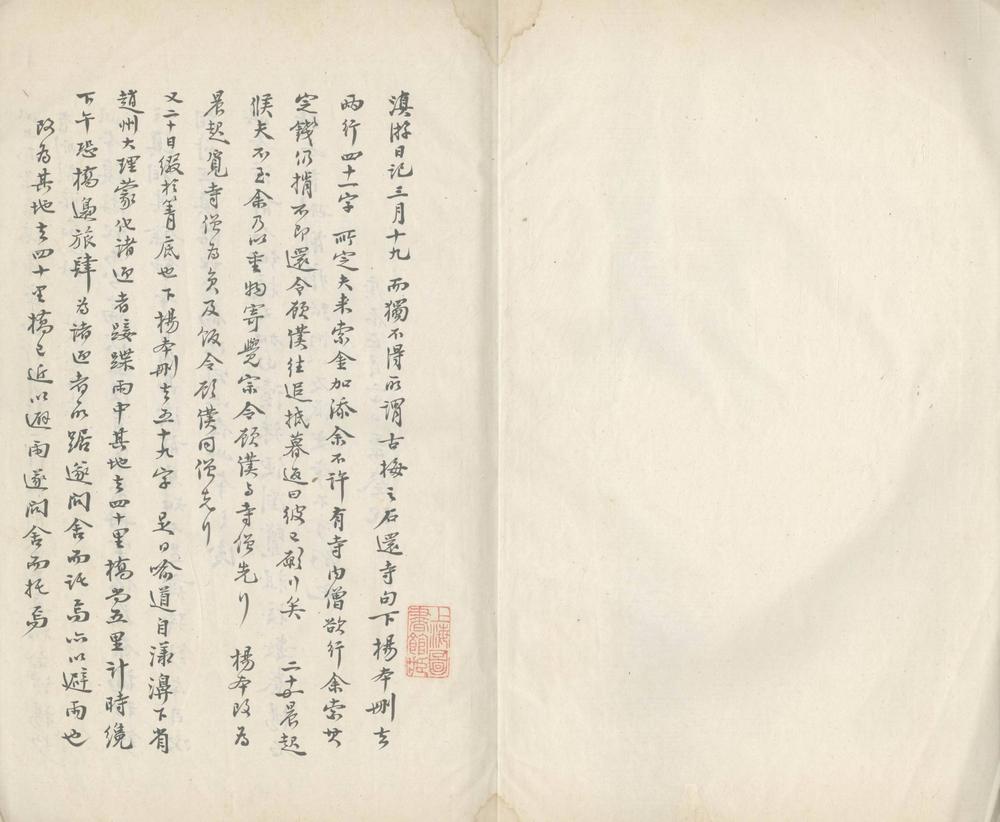 滇游日记三月十九 而獨不得所謂古梅之石還寺句下楊本刪去
兩行四十一字 所定夫来索金加添余不许有寺内僧欲行余索其
定錢仍掯不即還令顾僕往追抵暮返曰彼已願行矣 二十日晨起
候夫不至余乃以重物寄覺宗令顾僕与寺僧先行 楊本改为
晨起覓寺僧为负及饭令顾僕同僧先行
又二十日缀於箐底也下楊本刪去五十九字 是日喻道自漾濞下省
趙州大理蒙化诸迎者踥蹀雨中其地去四十里橋尚五里計時纔
下午恐橋邊旅肆为诸迎者所踞遂问舍而託焉亦以避雨也
改为其地去四十里橋已近以避雨遂问舍而托焉
上海圖書館藏